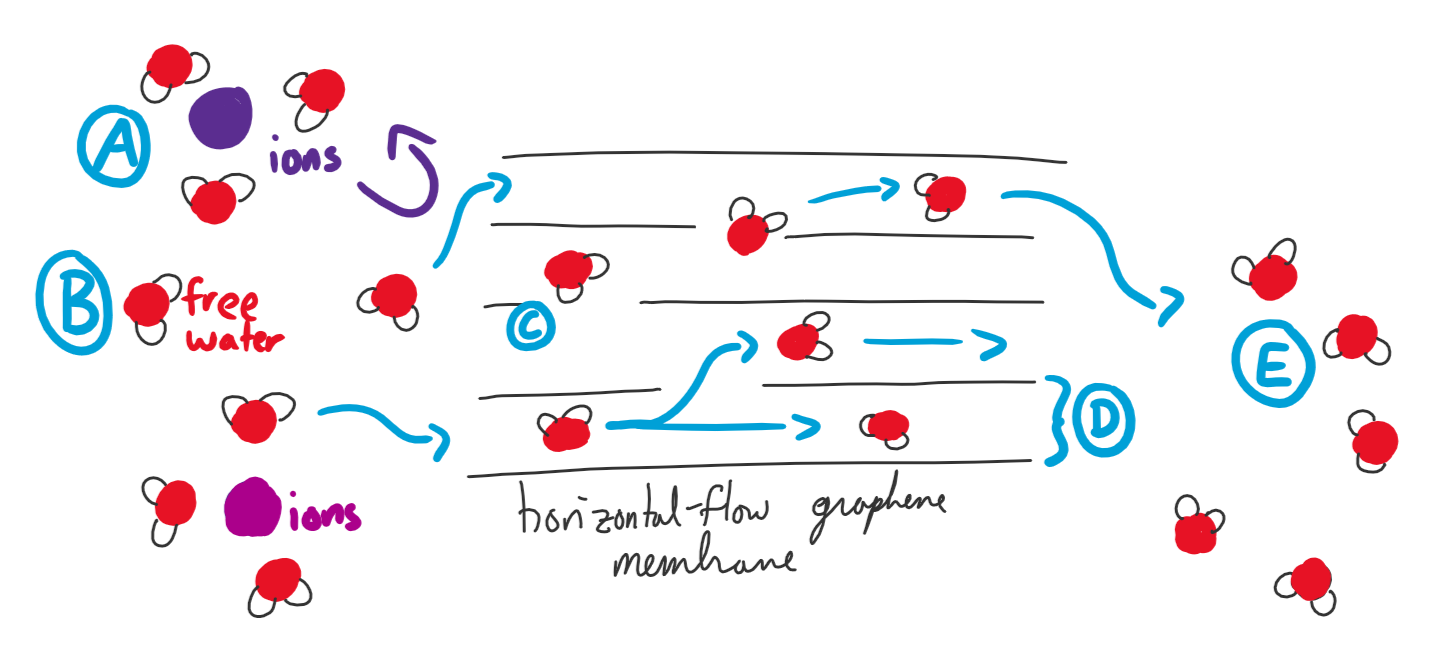 A
ions
B
free
water
C
D
E
ions
horizontal-flow graphene
membrane